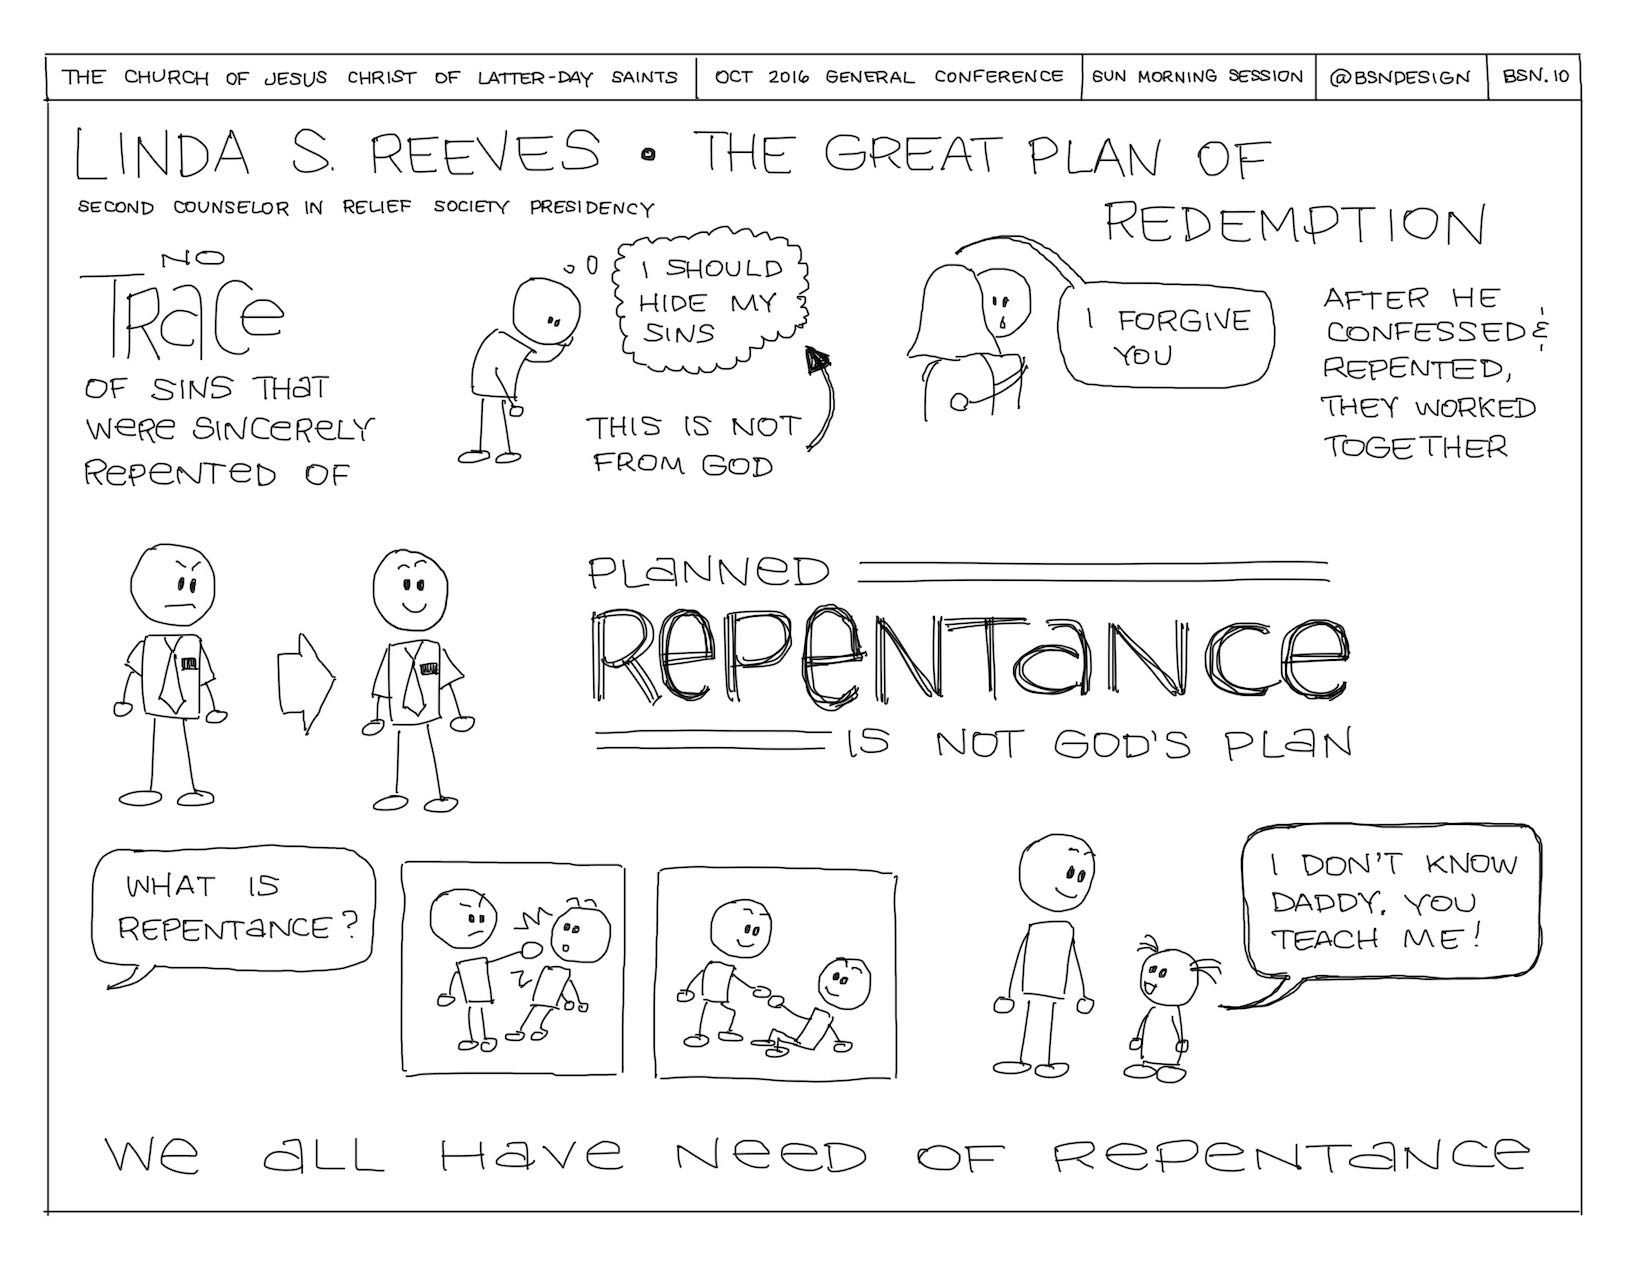 THE CHURCH OF JESUS CHRIST OF LATTER-DAY SAINTS
OCT 2016 GENERAL CONFERENCE
SUN MORNING SESSION
@BSNDESIGN
BSN.10
LINDA S. REEVES • THE GREAT PLAN OF
REDEMPTION
SECOND COUNSELOR IN RELIEF SOCIETY PRESIDENCY
NO
TRaCe
OF SINS THaT
WeRe SINCeReLY
RePeNTeD OF
I SHOULD
HIDE MY
SINS
THIS IS NOT
FROM GOD
I FORGIVE
YOU
AFTER HE
CONFESSED &
REPENTED,
THEY WORKED
TOGETHER
PLaNNeD
RePeNTaNCe
IS NOT GOD'S PLaN
WHAT IS
REPENTaNCE?
I DON'T KNOW
DADDY. YOU
TEACH ME!
We aLL HaVe NeeD OF RePeNTaNCe